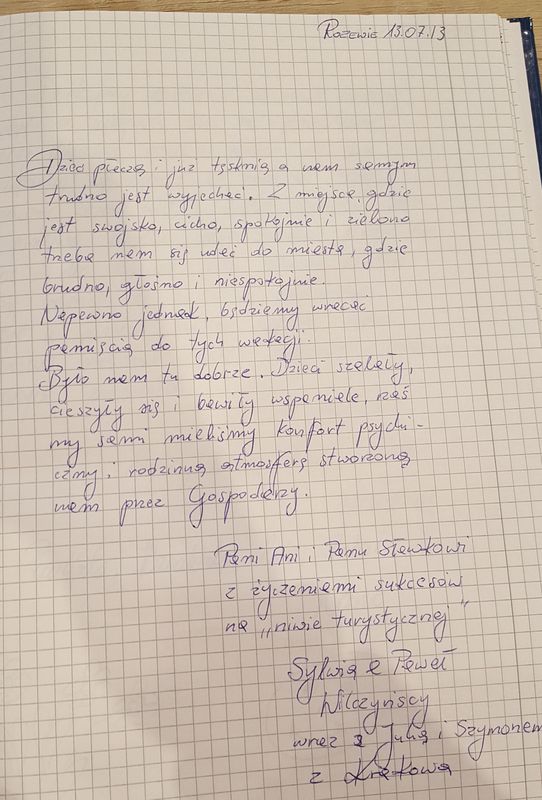 Rozewie 13.07.13
Dzieci płaczą i już tęsknią a nam samym
trudno jest wyjechać. Z miejsca, gdzie
jest swojsko, cicho, spokojnie i zielono
trzeba nam się udać do miasta, gdzie
brudno, głośno i niespokojnie.
Napewno jednak, będziemy wracać
pamięcią do tych wakacji.
Było nam tu dobrze. Dzieci szalały,
cieszyły się i bawiły wspaniale, zaś
my sami mieliśmy komfort psychi-
czny i rodzinną atmosferę stworzoną
nam przez Gospodarzy.
Pani Ani i Panu Sławkowi
z życzeniami sukcesów
na „niwie turystycznej”
Sylwia & Paweł
Wilczyńscy
wraz z Julią i Szymonem
z Krakowa